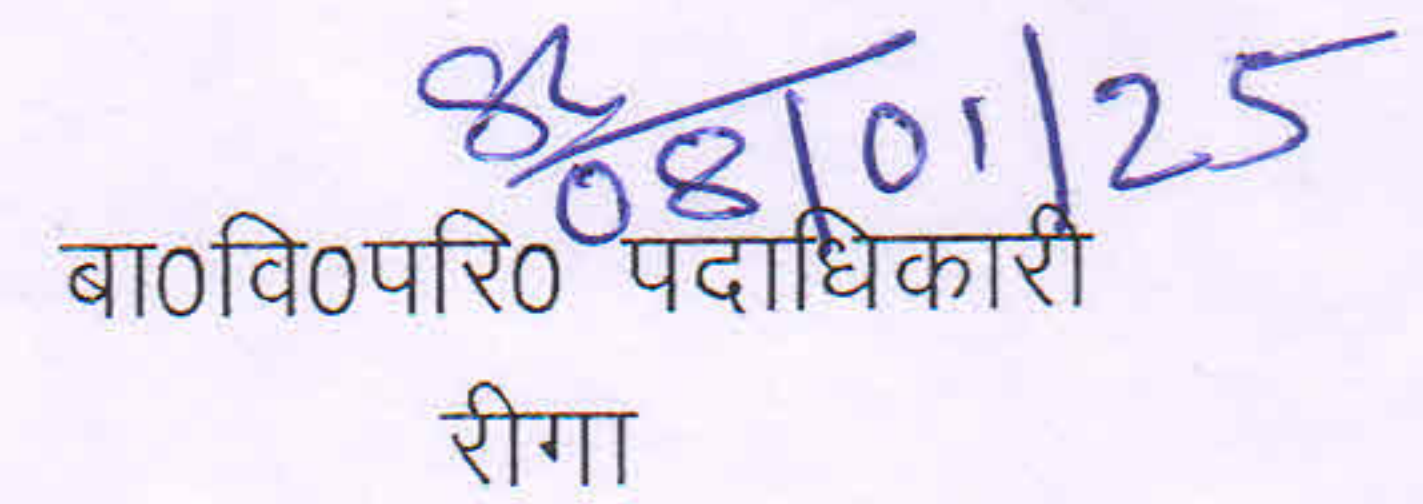 08/01/25
बा०वि०परि० पदाधिकारी
रीगा